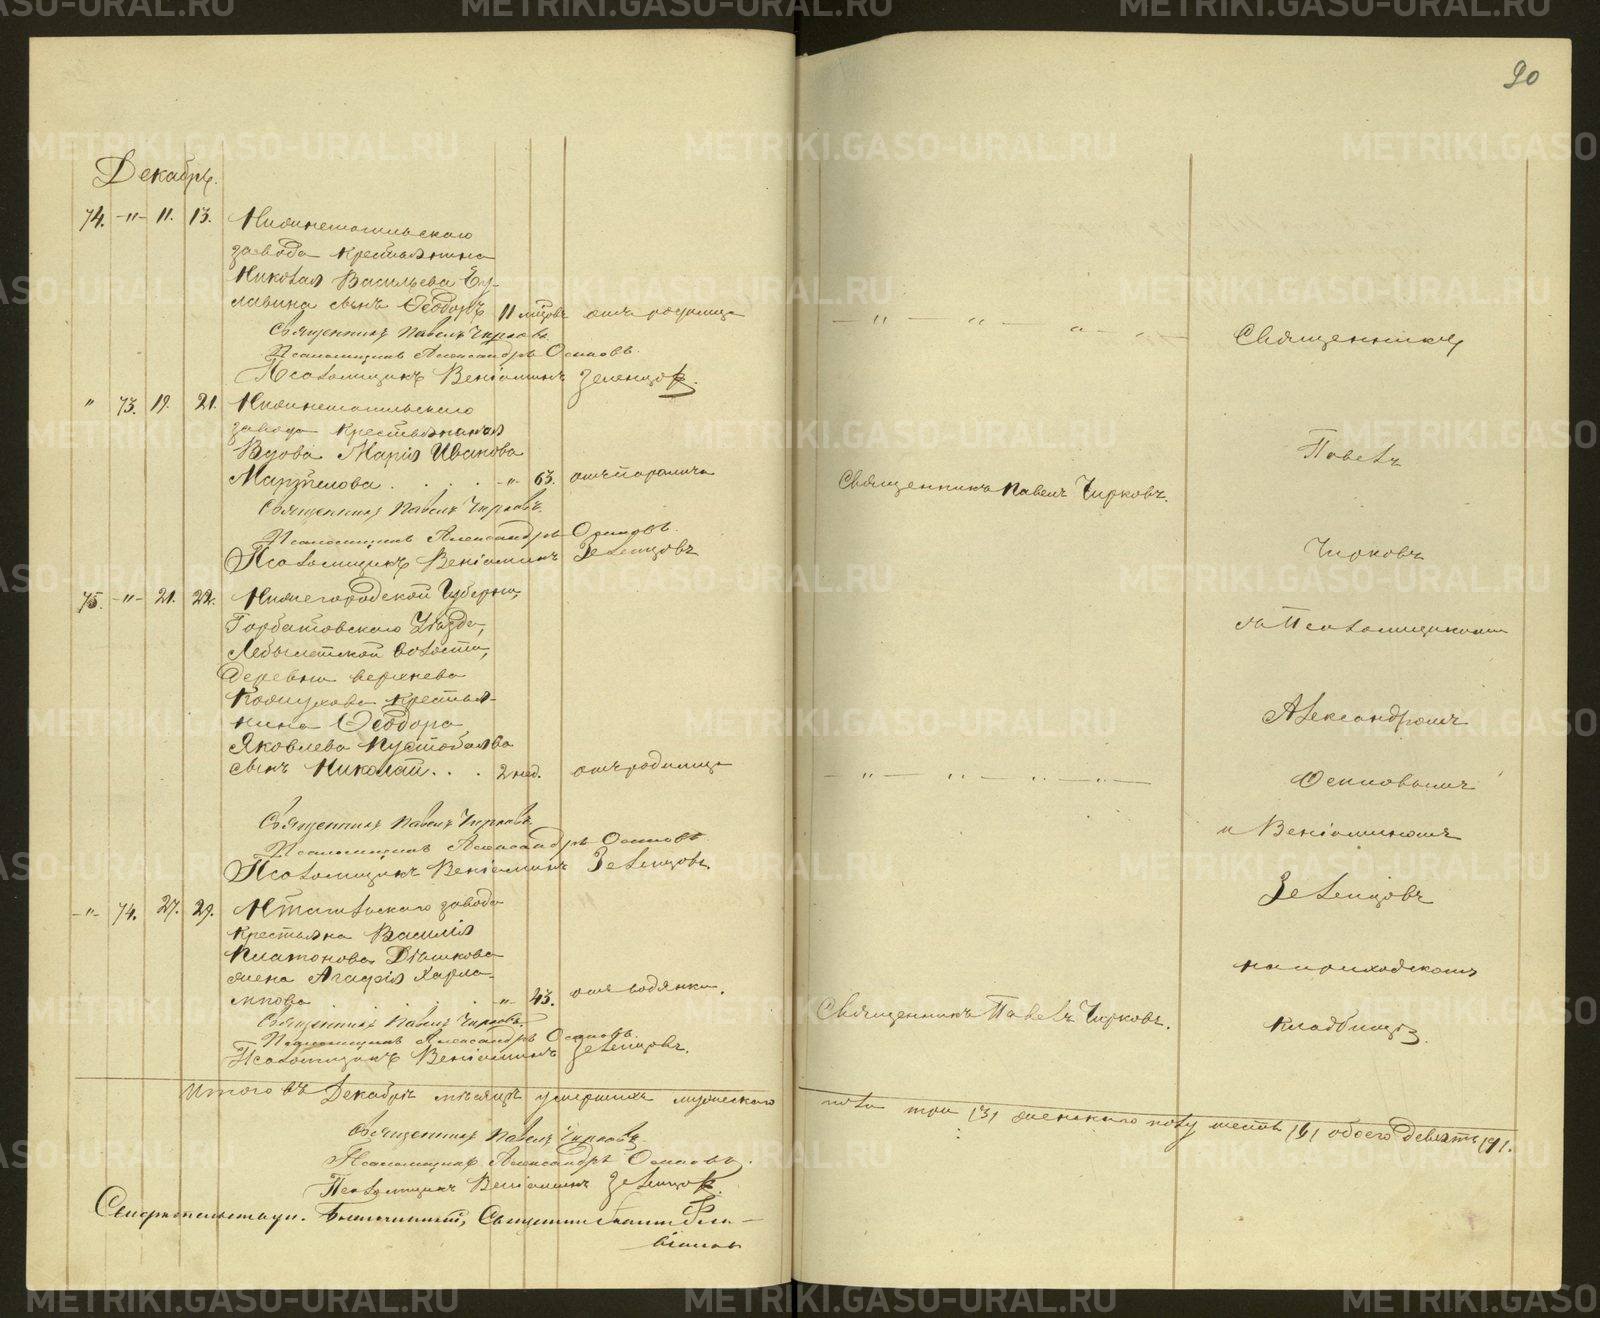 90
Декабрь.
74. -"- 11. 13. Нижнетагильскаго
завода крестьянина
Николая Васильева Бу-
лавина сынъ Ѳеодоръ 11 мцовъ отъ родимца
Священникъ Павелъ Чирковъ
Псаломщикъ Александръ Осиповъ.
Псаломщикъ Веніаминъ Зеленцовъ.
" 73. 19. 21. Нижнетагильскаго
завода крестьянская
Вдова Марія Иванова
. . . . -"- 63. отъ паралича
Священникъ Павелъ Чирковъ.
Псаломщикъ Александръ Осиповъ.
Псаломщикъ Веніаминъ Зеленцовъ
75. -"- 21. 22. Нижегородской Губерніи,
Горбатовскаго Уѣзда,
волости,
деревни верхнева
Кожухова крестья-
нина Ѳеодора
Яковлева
сынъ Николай. . . 2 нед. отъ родимца
Священникъ Павелъ Чирковъ
Псаломщикъ Александръ Осиповъ
Псаломщикъ Веніаминъ Зеленцовъ.
-"- 74. 27. 29. Нтагильскаго завода
крестьяна Василія
Платонова Дѣшкова
жена Агафія Харла-
мпова . . . . -"- 43. отъ водянки.
Священникъ Павелъ Чирковъ.
Псаломщикъ Александръ Осиповъ.
Псаломщикъ Веніаминъ Зеленцовъ.
Итого въ Декабрѣ мѣсяцѣ умершихъ мужескаго
Священникъ Павелъ Чирковъ.
Псаломщикъ Александръ Осиповъ.
Псаломщикъ Веніаминъ Зеленцовъ.
Благочинный, Священникъ
-"- -"- -"- -"-
Священникъ Павелъ Чирковъ.
-"- -"- -"- -"-
Священникъ Павелъ Чирковъ.
Священникъ
Павелъ
Чирковъ
съ Псаломщиками
Александромъ
Осиповымъ
и Веніаминомъ
Зеленцовъ
на приходскомъ
кладбищѣ.
пола три /3/ женскаго полу шесть /6/ обоего девять /9/.
METRIKI.GASO-URAL.RU